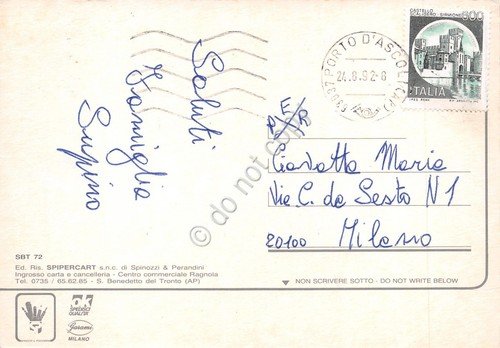 Saluti
Famiglia
Supino
CASTELLO
600
ITALIA
PORTO D'ASCOLI
24.8.92-8
P E/R
Ciavatta Maria
Via C. da Sesto N 1
20100 Milano
do not copy
SBT 72
Ed. Ris. SPIPERCART s.n.c. di Spinozzi & Perandini
Ingrosso carta e cancelleria - Centro commerciale Ragnola
Tel. 0735 / 65.62.85 - S. Benedetto del Tronto (AP)
NON SCRIVERE SOTTO - DO NOT WRITE BELOW
OK
Garami
MILANO